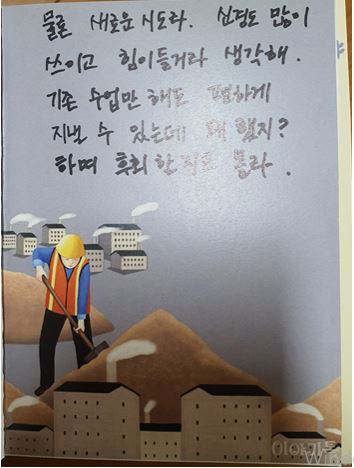 물론 새로운 시도라. 신경도 많이
쓰이고 힘이들거라 생각해.
기존 수업만 해도 편하게
지낼 수 있는데 왜 했지?
하며 후회 한적도 몰라.
이야기톡